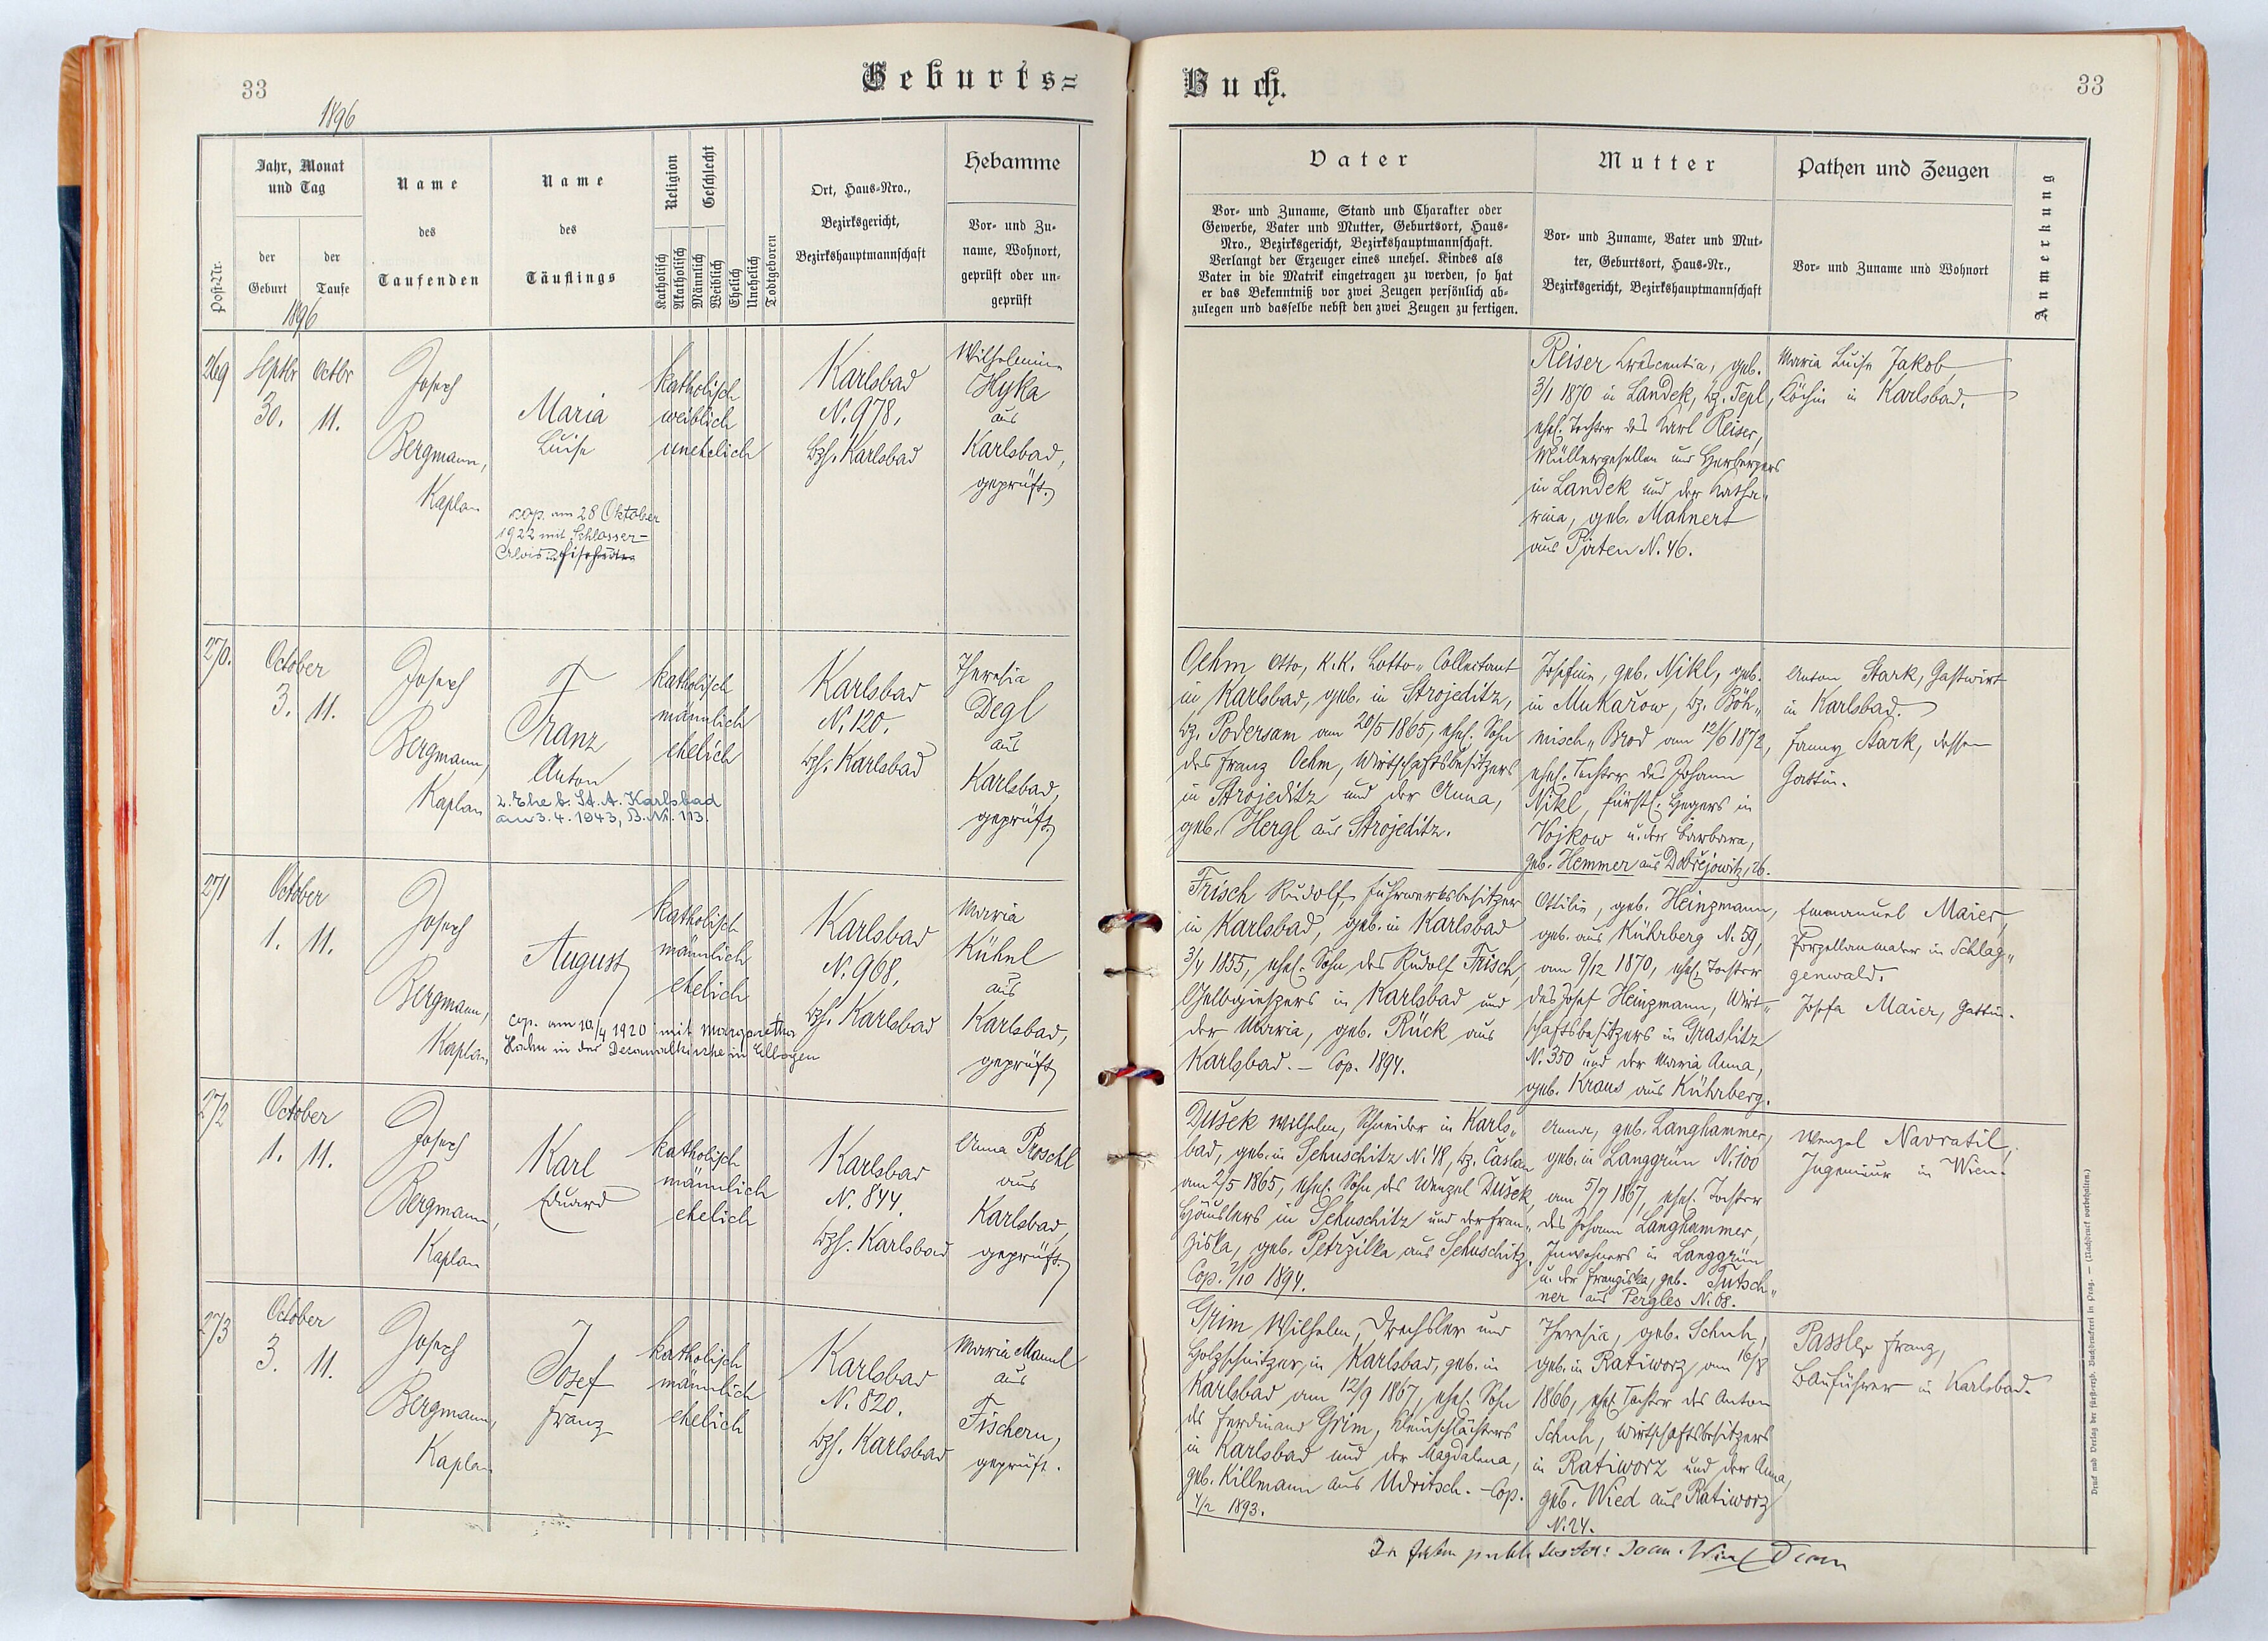 33
Geburts=
1896
Post-Nr.
Jahr, Monat
und Tag
der
Geburt
der
Taufe
1896
Name
des
Taufenden
Name
des
Täuflings
Religion
Katholisch
Akatholisch
Geschlecht
Männlich
Weiblich
Ehelich
Unehelich
Todtgeboren
Ort, Haus=Nro.,
Bezirksgericht,
Bezirkshauptmannschaft
Hebamme
Vor= und Zu=
name, Wohnort,
geprüft oder un=
geprüft
269
Septbr
30.
Octbr
11.
Josef
Bergmann,
Kaplan
Maria
Luise
cop. am 28 Oktober
1922 mit Schlosser-
Alois
katholisch
weiblich
unehelich
Karlsbad
N. 978,
Bzh. Karlsbad
Wilhelmine
Hyka
aus
Karlsbad,
geprüft.
270.
October
3. 11.
Josef
Bergmann,
Kaplan
Franz
Anton
2. Ehe b. St. A. Karlsbad
am 3. 4. 1943, B. Nr. 113.
katholisch
männlich
ehelich
Karlsbad
N. 120.
Bzh. Karlsbad
Theresia
Degl
aus
Karlsbad,
geprüft
271
October
1. 11.
Josef
Bergmann,
Kaplan
August
cop. am 10/4 1920 mit Margaretha
Hahn in der Decanalkirche in Elbogen
katholisch
männlich
ehelich
Karlsbad
N. 968,
Bzh. Karlsbad
Maria
Kühnl
aus
Karlsbad,
geprüft
272
October
1. 11.
Josef
Bergmann,
Kaplan
Karl
Eduard
katholisch
männlich
ehelich
Karlsbad
N. 844.
Bzh. Karlsbad
Anna Proschl
aus
Karlsbad,
geprüft.
273
October
3. 11.
Josef
Bergmann,
Kaplan
Josef
Franz
katholisch
männlich
ehelich
Karlsbad
N. 820.
Bzh. Karlsbad
Maria Mannl
aus
Fischern,
geprüft.
Buch.
33
Vater
Vor= und Zuname, Stand und Charakter oder
Gewerbe, Vater und Mutter, Geburtsort, Haus=
Nro., Bezirksgericht, Bezirkshauptmannschaft.
Verlangt der Erzeuger eines unehel. Kindes als
Vater in die Matrik eingetragen zu werden, so hat
er das Bekenntniß vor zwei Zeugen persönlich ab=
zulegen und dasselbe nebst den zwei Zeugen zu fertigen.
Mutter
Vor= und Zuname, Vater und Mut=
ter, Geburtsort, Haus=Nr.,
Bezirksgericht, Bezirkshauptmannschaft
Pathen und Zeugen
Vor= und Zuname und Wohnort
Anmerkung
Reiser Crescentia, geb.
3/1 1870 in Landek, Bz. Tepl,
ehel. Tochter des Karl Reiser,
Müllergesellen und Herbergers
in Landek und der Katha„
rina, geb. Mahnert
aus Pirten N. 46.
Maria Luise Jakob,
Köchin in Karlsbad.
Oehm Otto, K.K. Lotto„Collectant
in Karlsbad, geb. in Strojeditz,
Bz. Podersam am 20/5 1865, ehel. Sohn
des Franz Oehm, Wirtschaftsbesitzers
in Strojeditz und der Anna,
geb. Hergl aus Strojeditz.
Josefine, geb. Nikl, geb.
in Mukařow, Bz. Böh„
misch„Brod am 12/6 1872,
ehel. Tochter des Johann
Nikl, fürstl. Hegers in
Vojkow u. der Barbara,
geb. Hemmer aus Dobřejowitz, 26.
Anton Stark, Gastwirt
in Karlsbad.
Fanny Stark, dessen
Gattin.
Frisch Rudolf, Fuhrwerksbesitzer
in Karlsbad, geb. in Karlsbad
3/4 1855, ehel. Sohn des Rudolf Frisch,
Gelbgießers in Karlsbad und
der Maria, geb. Rück aus
Karlsbad. – Cop. 1894.
Ottilie, geb. Heinzmann,
geb. aus Kührberg N. 59,
am 9/12 1870, ehel. Tochter
des Josef Heinzmann, Wirt„
schaftsbesitzers in Graslitz
N. 350 und der Maria Anna,
geb. Kraus aus Kührberg.
Emanuel Maier,
Porzellanmaler in Schlag„
genwald.
Josefa Maier, Gattin.
Dušek Wilhelm, Schneider in Karls„
bad, geb. in Sehuschitz N. 48, Bz. Časlau
am 2/5 1865, ehel. Sohn des Wenzel Dušek,
Häuslers in Sehuschitz und der Fran„
ziska, geb. Petržilka aus Sehuschitz.
Cop. 2/10 1894.
Anna, geb. Langhammer,
geb. in Langgrün N. 100
am 5/7 1867, ehel. Tochter
des Johann Langhammer,
Inwohners in Langgrün
u. der Franziska, geb. Tutsch„
ner aus Pergles N. 68.
Wenzel Navratil,
Ingenieur in Wien.
Grim Wilhelm, Drechsler und
Holzschnitzer, in Karlsbad, geb. in
Karlsbad am 12/9 1867, ehel. Sohn
des Ferdinand Grim, Kleinschlächters
in Karlsbad und der Magdalena,
geb. Killmann aus Udritsch. – Cop.
4/2 1893.
Theresia, geb. Schuh,
geb. in Ratiworz am 16/8
1866, ehel. Tochter des Anton
Schuh, Wirtschaftsbesitzers
in Ratiworz und der Anna,
geb. Wied aus Ratiworz
N. 24.
Passler Franz,
Bauführer in Karlsbad.
Druck und Verlag der fürst-erzb. Buchdruckerei in Prag. — (Nachdruck vorbehalten.)